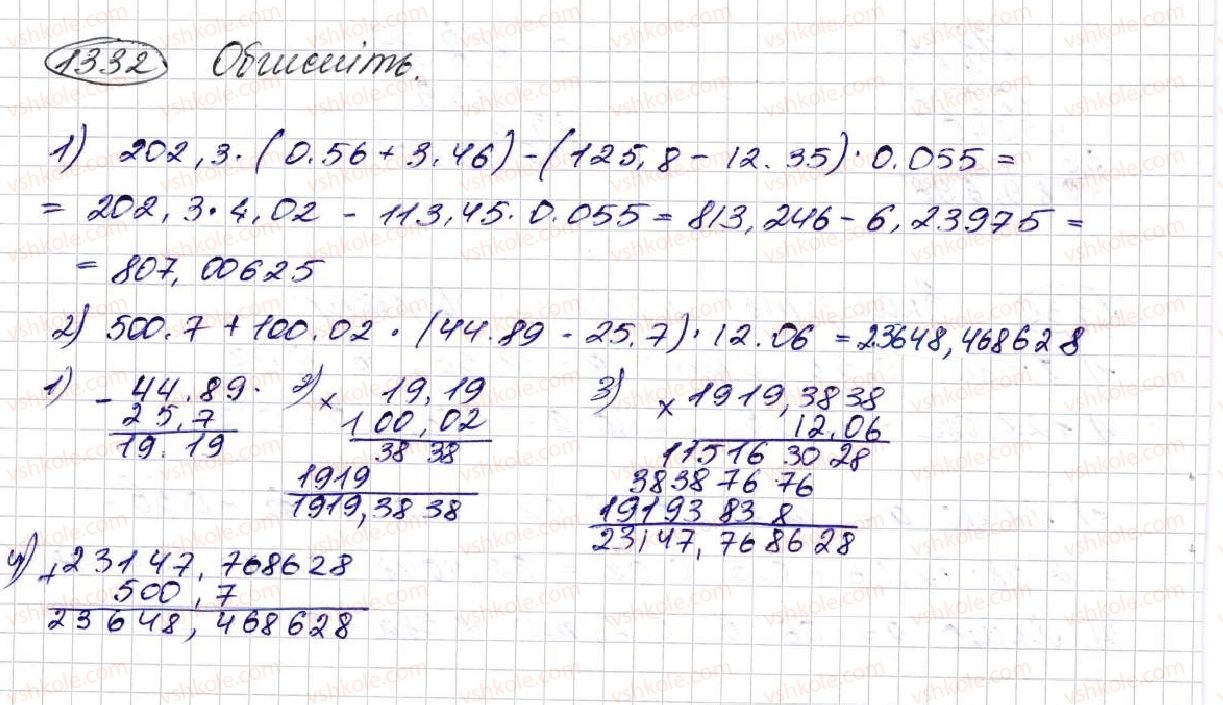 1332 Обчисліть.
1) 202,3·(0.56+3.46)-(125,8-12.35)·0.055=
= 202,3·4,02 - 113,45·0.055= 813,246-6,23975=
= 807,00625
2) 500.7+100.02·(44.89-25.7)·12.06 =23648,468628
1) - 44.89
25,7
19.19
2) x 19,19
100,02
38 38
1919
1919,38 38
3) x 1919,3838
12,06
11516 30 28
3838 76 76
19193 83 8
23147,768628
4) +23147,768628
500,7
23648,468628